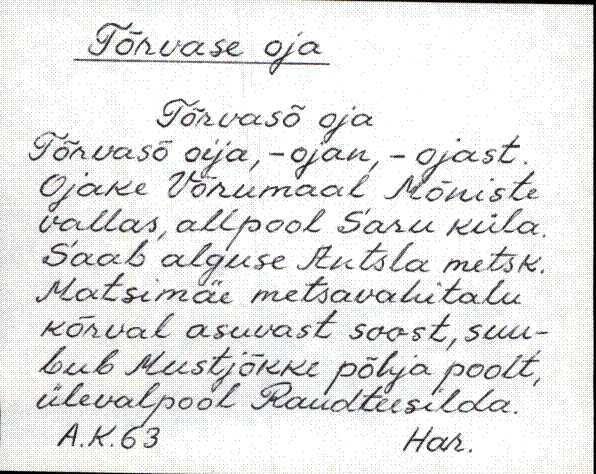 Tõrvase oja
Tõrvasõ oja
Tõrvasõ oija, -ojan, -ojast.
Ojake Võrumaal Mõniste
vallas, allpool Saru küla.
Saab alguse Antsla metsk.
Matsimäe metsavahitalu
kõrval asuvast soost, suu-
bub Mustjõkke põhja poolt,
ülevalpool Raudteesilda.
A.K.63 Har.